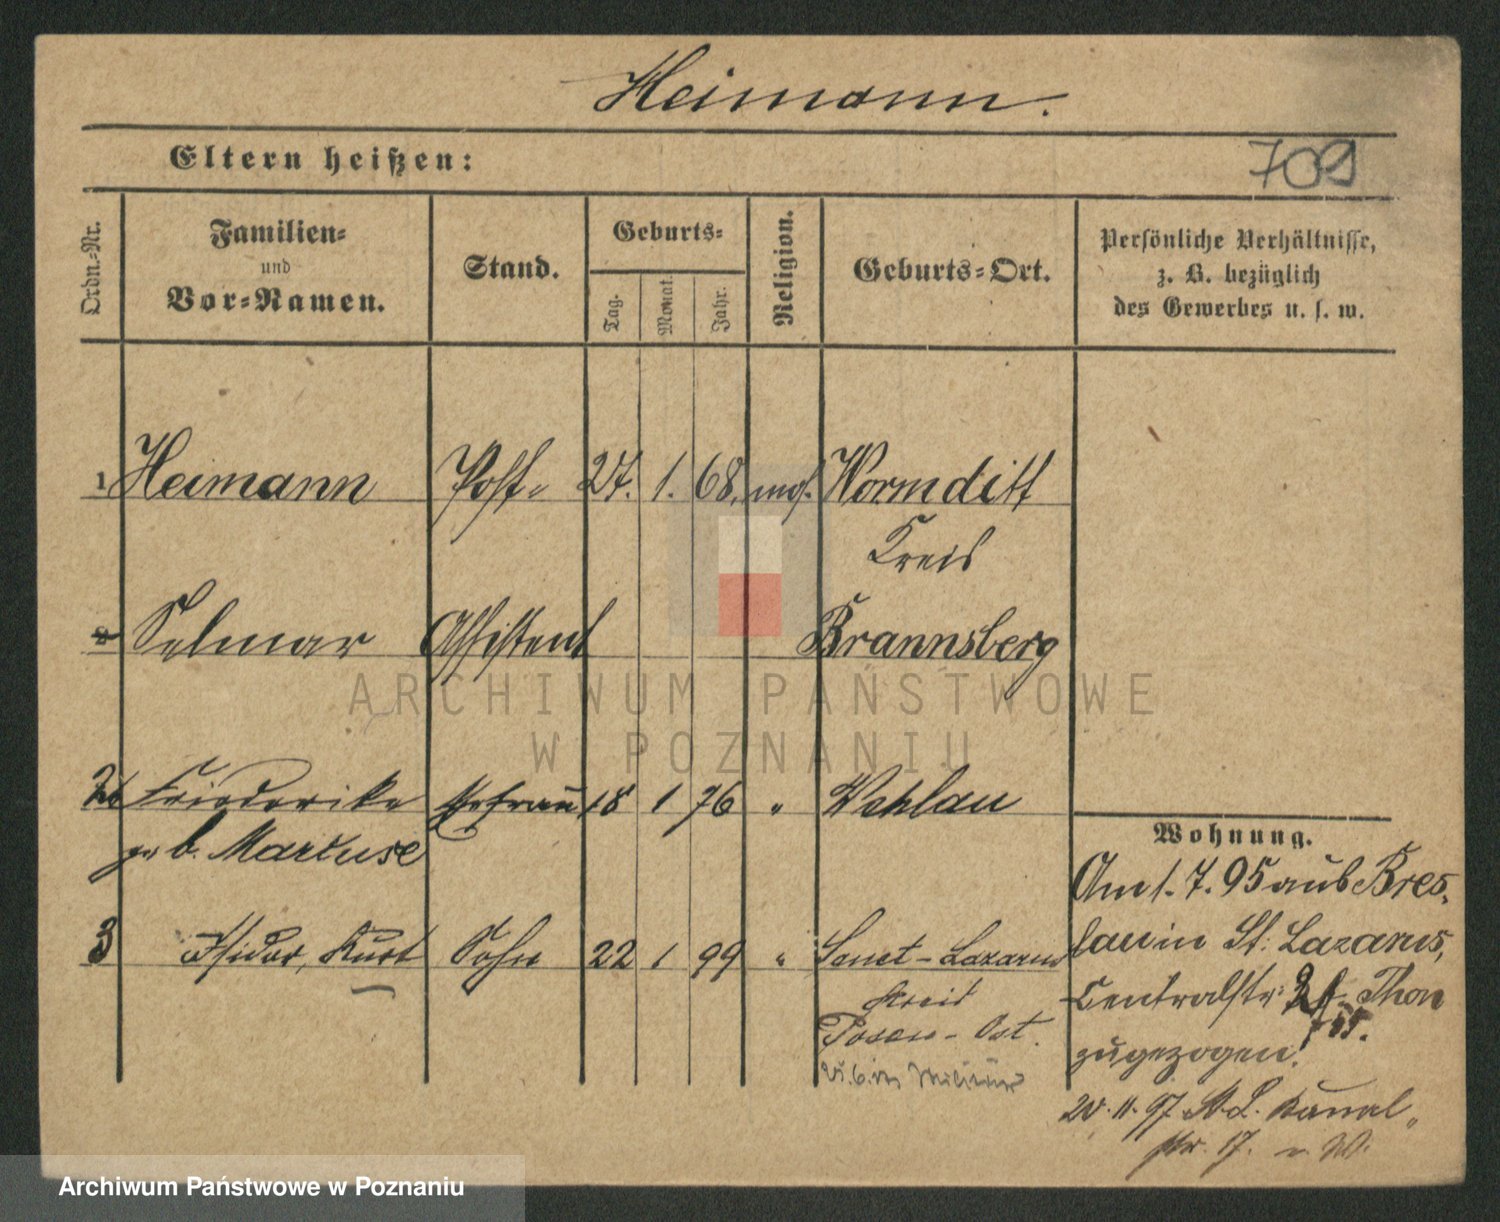 Heimann.
Eltern heißen:
709
Ordn.-Nr.
Familien-
und
Vor-Namen.
Stand.
Geburts-
Tag.
Monat.
Jahr.
Religion.
Geburts-Ort.
Persönliche Verhältnisse,
z. B. bezüglich
des Gewerbes u. s. w.
1 Heimann Post- 27. 1. 68. mos. Wormditt
Kreis
2 Selmar Assistent Braunsberg
2 Friederike Ehefrau 18 1 76 " Wehlau
geb. Markuse
3 Isidor, Kurt Sohn 22 1 99 " Sanct-Lazarus
Kreis
Posen-Ost.
Militär
Wohnung.
Am 1. 7. 95 aus Bres-
lau in St. Lazarus,
Centralstr: Thon
zugezogen.
20. 11. 97 St. L. Kanal-
str. 17. n. W.
ARCHIWUM PAŃSTWOWE
W POZNANIU
Archiwum Państwowe w Poznaniu